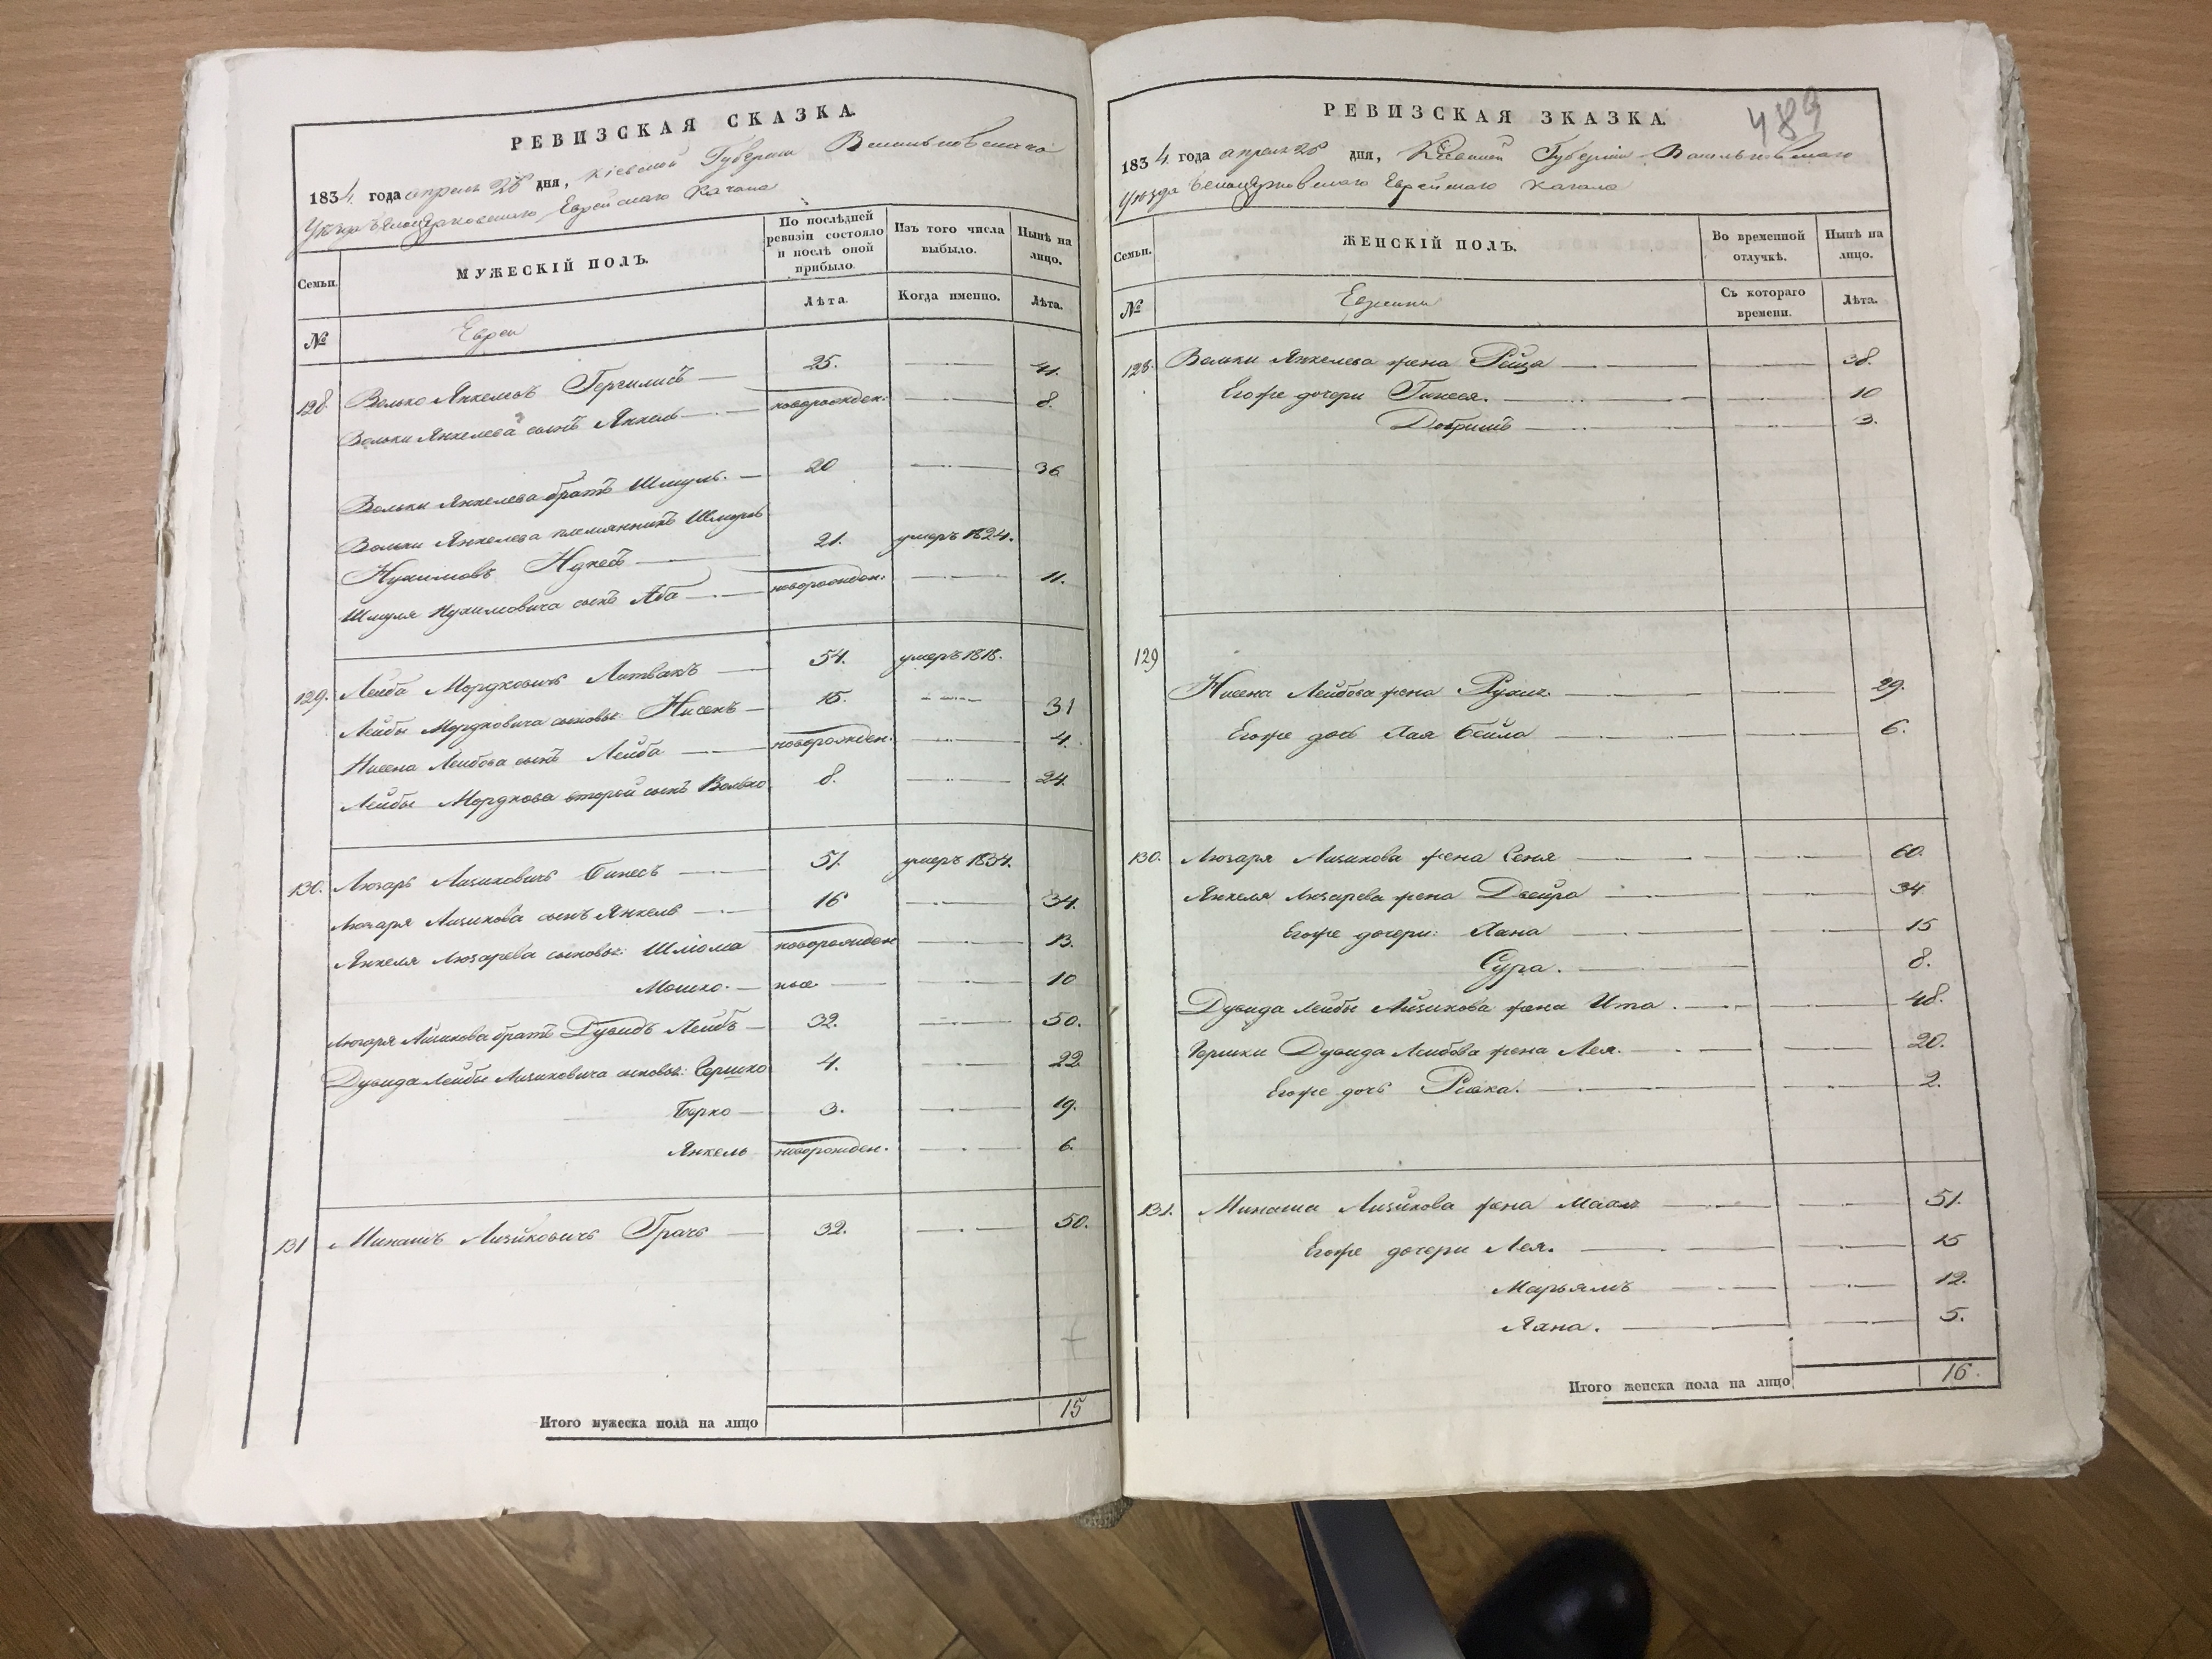 РЕВИЗСКАЯ СКАЗКА.
1834. года апреля 25 дня, Кіевской Губерніи Васильковскаго
Уѣзда Белоцерковскаго Еврейскаго Кагала
Семьи.
МУЖЕСКІЙ ПОЛЪ.
По послѣдней ревизіи состояло и послѣ оной прибыло.
Изъ того числа выбыло.
Нынѣ на лицо.
Лѣта.
Когда именно.
Лѣта.
№
Евреи
128. Волько Янкелевъ 25. 41.
Вольки Янкелева сынъ Янкель новорожден. 8.
Вольки Янкелева братъ Шмуль. 20 36
Вольки Янкелева племянникъ Шмуль
Нухимовъ 21. умеръ 1824.
Шмуля Нухимовича сынъ Аба новорожден. 11.
129. Лейба Мордковичъ Литвакъ 54. умеръ 1818.
Лейбы Мордковича сыновья: Нисенъ 15. 31
Нисена Лейбова сынъ Лейба новорожден. 4.
Лейбы Мордкова второй сынъ Волько 8. 24.
130. Люзаръ Айзиковичъ 51. умеръ 1834.
Люзаря Айзикова сынъ Янкель 16 34.
Янкеля Люзарева сыновья: Шлиома новорожден 13.
Мошко. ные 10
Люзаря Айзикова братъ Дувидъ Лейбъ 32. 50.
Дувида Лейбы Айзиковича сыновья: Гершко 4. 22
Берко 3. 19.
Янкель новорожден. 6.
131 Минашъ Айзиковичъ Грачъ 32. 50.
Итого мужеска пола на лицо 15
РЕВИЗСКАЯ ЗКАЗКА.
489
1834. года апреля 25 дня, Кіевской Губерніи Васильковскаго
Уѣзда Белоцерковскаго Еврейскаго Кагала
Семьи.
ЖЕНСКІЙ ПОЛЪ.
Во временной отлучкѣ.
Нынѣ на лицо.
№
Съ котораго времени.
Лѣта.
128. Вольки Янкелева жена Рейза 38.
Его же дочери 10
Добришъ 3.
129
Нисена Лейбова жена Рухля. 29.
Его же дочь Хая Бейла 6.
130. Люзаря Айзикова жена Сеня 60.
Янкеля Люзарева жена Двейра 34
Его же дочери: Хана 15
Сура. 8.
Дувида Лейбы Айзикова жена Ита. 48.
Гершки Дувида Лейбова жена Лея. 20.
Его же дочь Ривка. 2.
131. Минаша Айзикова жена 51.
Его же дочери Лея. 15
Марьямъ 12.
Хана. 5.
Итого женска пола на лицо 16.